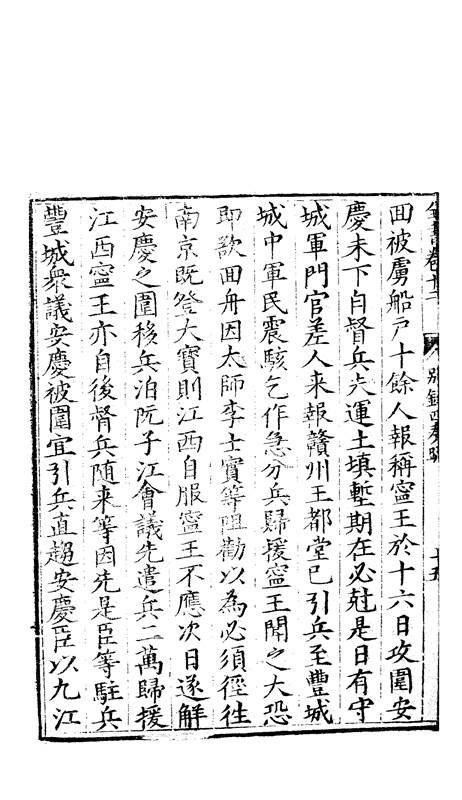 全書卷十二 別錄四奏疏 十五
回被虜船戶十餘人報稱寧王於十六日攻圍安
慶未下自督兵夫運土填塹期在必尅是日有守
城軍門官差人来報贛州王都堂已引兵至豐城
城中軍民震駭乞作急分兵歸援寧王聞之大恐
即欲回舟因太師李士實等阻勸以為必須徑往
南京既登大寶則江西自服寧王不應次日遂解
安慶之圍移兵泊阮子江會議先遣兵二萬歸援
江西寧王亦自後督兵随来等因先是臣等駐兵
豐城衆議安慶被圍宜引兵直趨安慶臣以九江